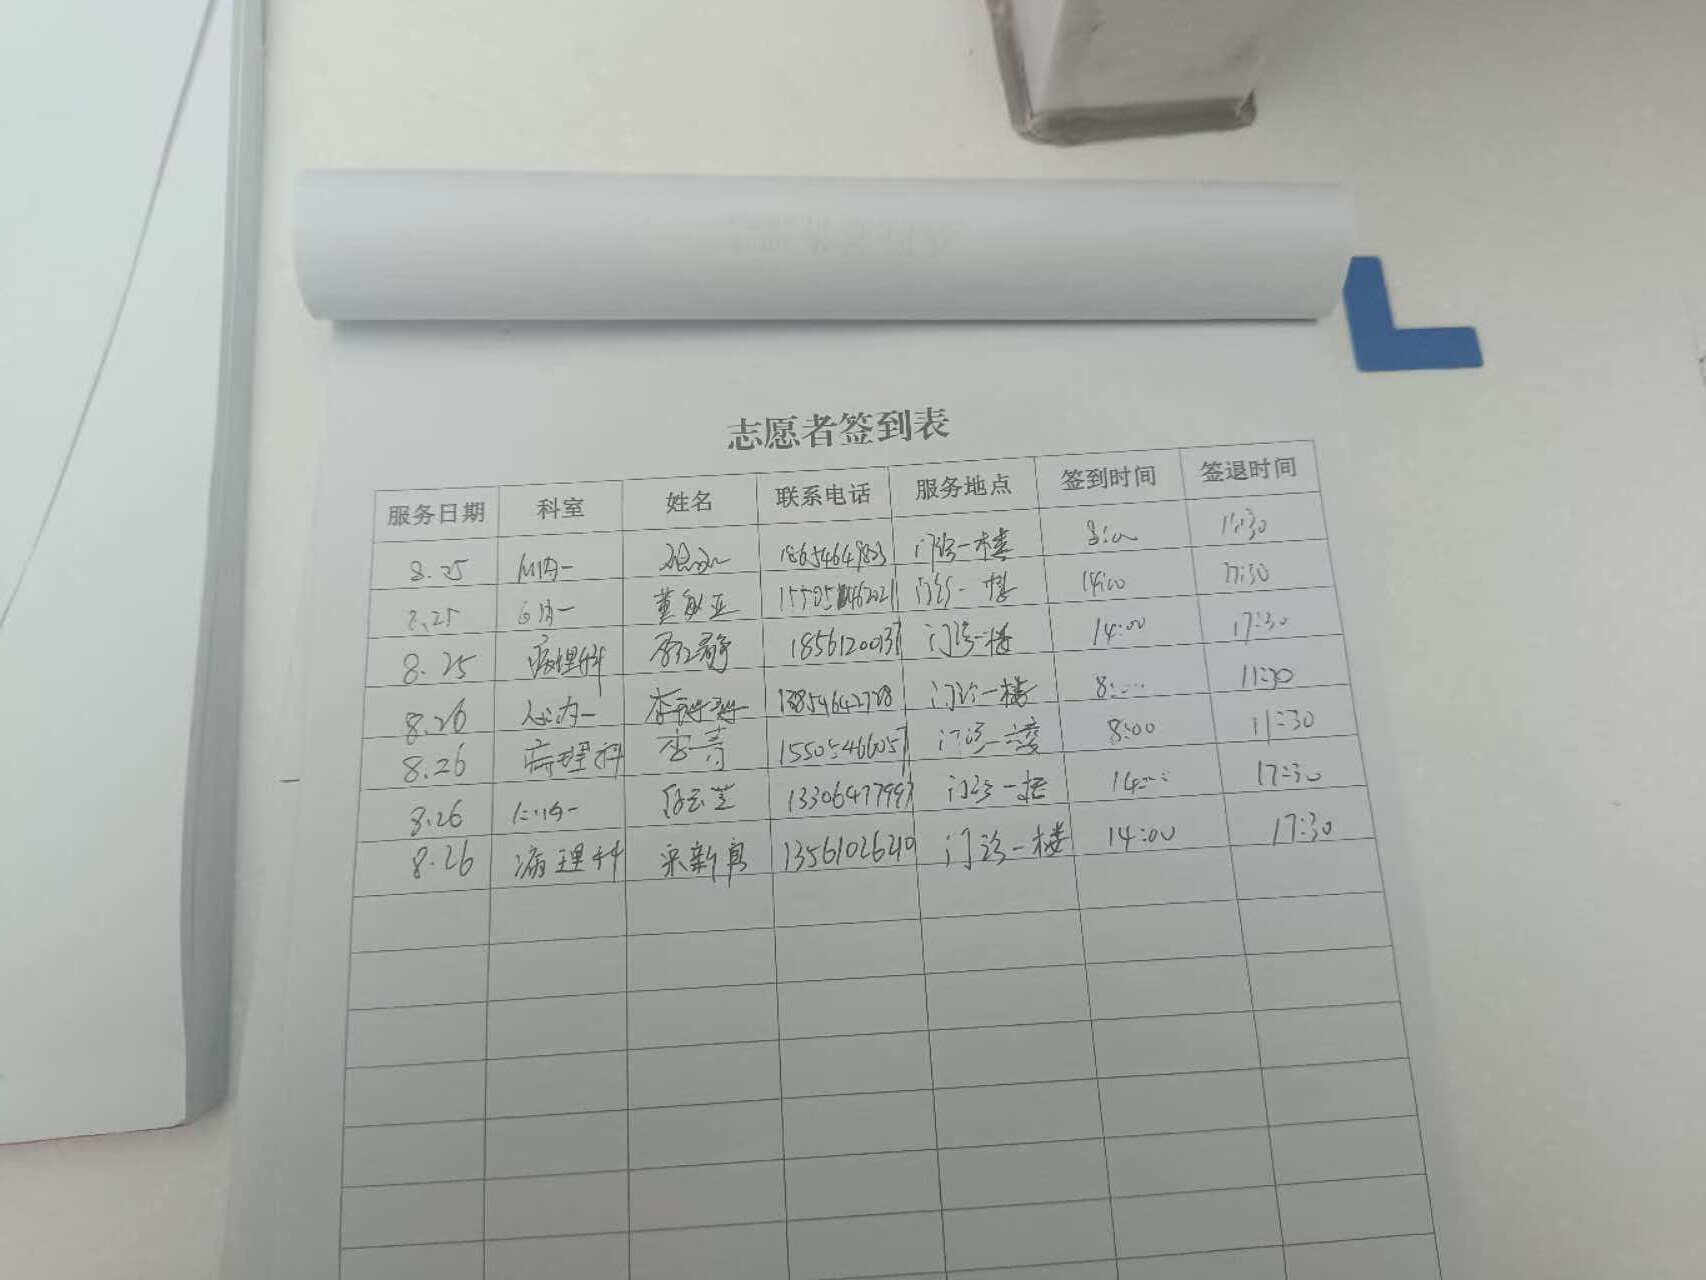 志愿者签到表
服务日期 科室 姓名 联系电话 服务地点 签到时间 签退时间
8.25 心内一 18654649823 门诊一楼 8:00 11:30
8.25 心内一 董敏亚 门诊一楼 14:00 17:30
8.25 病理科 李红静 18561200137 门诊一楼 14:00 17:30
8.26 心内一 李婷婷 13854642778 门诊一楼 8:00 11:30
8.26 病理科 李青 15505466057 门诊一楼 8:00 11:30
8.26 心内一 13306477997 门诊一楼 14:00 17:30
8.26 病理科 宋新勇 13561026210 门诊一楼 14:00 17:30